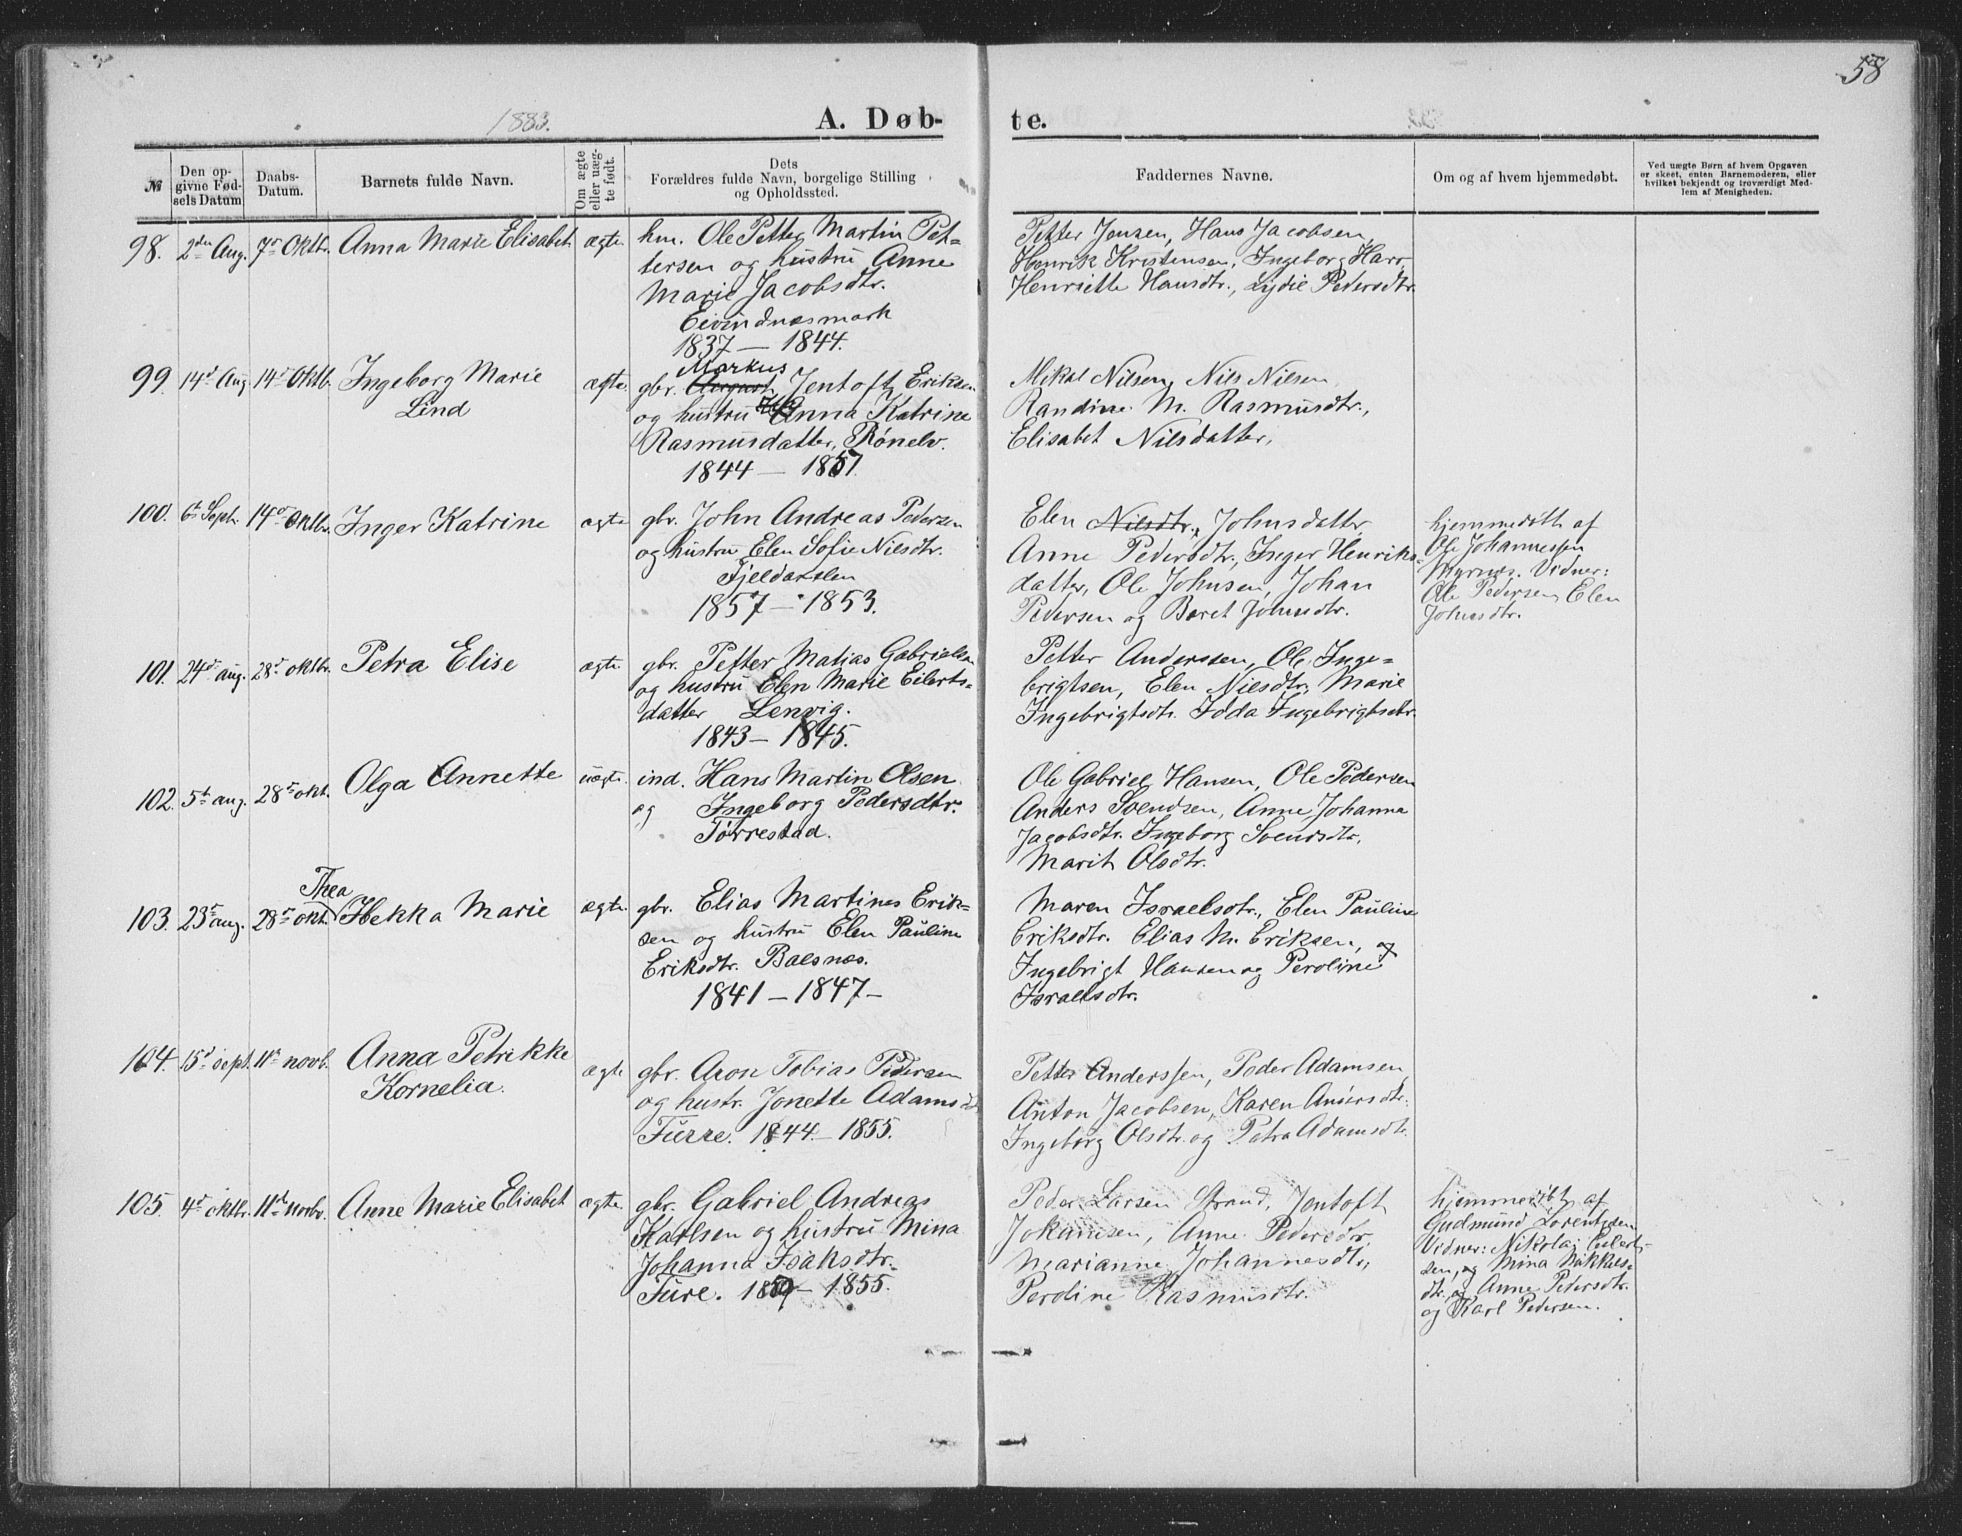 58
1883.
A. Døb-
te.
№
Den op-
givne Fød-
sels Datum
Daabs-
Datum.
Barnets fulde Navn.
Om ægte
eller uæg-
te født.
Dets
Forældres fulde Navn, borgelige Stilling
og Opholdssted.
Faddernes Navne.
Om og af hvem hjemmedøbt.
Ved uægte Børn af hvem Opgaven
er skeet, enten Barnemoderen, eller
hvilket bekjendt og troværdigt Med-
lem af Menigheden.
98. 2den Aug. 7de Oktbr. Anna Marie Elisabet ægte
hm. Ole Petter Martin Pet-
tersen og hustru Anne
Marie Jacobsdtr.
Eivindnæsmark
1837 — 1844.
Petter Jensen, Hans Jacobsen,
Henrik Kristensen, Ingeborg
Henriette Hansdtr., Lydie Pedersdtr.
99. 14d Aug. 14d Oktb. Ingeborg Marie
Lind
ægte
Markus
gbr. August Jentoft Eriksen
og hustru Anna Katrine
Rasmusdatter, Rønelv.
1844 — 1857.
Mikal Nilsen, Nils Nilsen,
Randine M. Rasmusdtr.,
Elisabet Nilsdatter,
100. 6t Sept. 14d Oktbr. Inger Katrine ægte
gbr. John Andreas Pedersen
og hustru Elen Sofie Nilsdtr.
Fjeldarslen
1857 — 1853.
Elen Nilsdtr., Johnsdatter,
Anne Pedersdtr., Inger Henriks-
datter, Ole Johnsen, Johan
Pedersen og Beret Johnsdtr.
hjemmedøbt af
Ole Johannessen
Myrnes. Vidner:
Ole Pedersen, Elen
Johnsdtr.
101. 24d aug. 28d oktbr. Petra Elise ægte
gbr. Petter Matias Gabrielsen
og hustru Elen Marie Eilerts-
datter Lenvig.
1843 — 1845.
Petter Anderssen, Ole Inge-
brigtsen, Elen Nilsdtr, Marie
Ingebrigtsdtr. Idda Ingebrigtsdtr.
102. 5t aug. 28d okt. Olga Annette uægte
ind. Hans Martin Olsen
og Ingeborg Pedersdtr.
Tørrestad.
Ole Gabriel Hansen, Ole Pedersen
Anders Svendsen, Anne Johanna
Jacobsdtr. Ingeborg Svendsdtr,
Marit Olsdtr.
Thea
103. 23d aug. 28d okt. Hekka Marie ægte.
gbr. Elias Martines Erik-
sen og hustru Elen Pauline
Eriksdtr. Balsnæs.
1841 — 1847 —
Maren Israelsdtr., Elen Pauline
Eriksdtr. Elias M. Eriksen, og
Ingebrigt Hansen og Peroline
Israelsdtr.
104. 15d sept. 11te novb. Anna Petrikke
Kornelia.
ægte
gbr. Aron Tobias Pedersen
og hustr. Jonette Adamsd
Furre. 1844 — 1855.
Petter Anderssen, Peder Adamsen,
Anton Jacobsen, Karen Andersdtr.
Ingeborg Olsdtr. og Petra Adamsdtr.
105. 4d oktbr. 11te novbr. Anne Marie Elisabet ægte
gbr. Gabriel Andreas
Karlsen og hustru Mina
Johanna Isaksdtr.
Fure. 1859 — 1855.
Peder Larsen Strand, Jentoft
Jokumsen, Anne Pedersdtr.
Marianne Johannesdtr,
Peroline Rasmusdtr.
hjemmedøbt af
Gudmund Lorentzsen
Vidner: Nikolai Eilert-
sen, og Mina Mikkels-
dtr, og Anne Pedersdtr.
og Karl Pedersen.